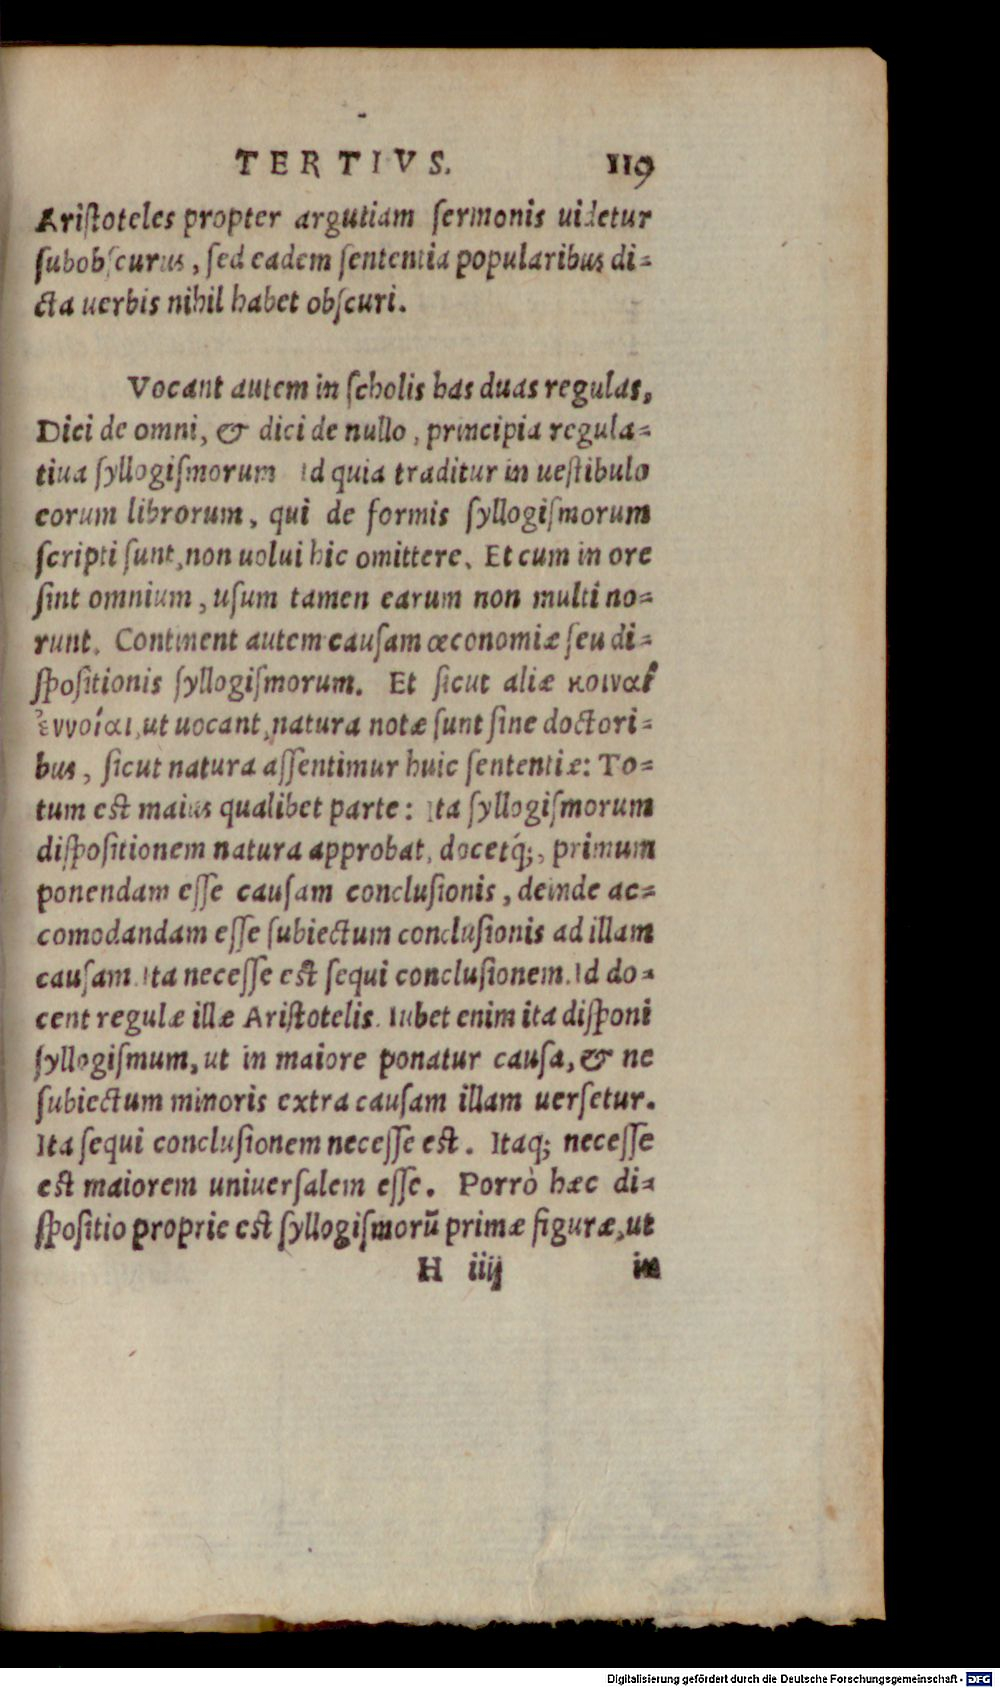 TERTIVS. 119
Ariſtoteles propter argutiam ſermonis uidetur
ſubobſcurus, ſed eadem ſententia popularibus di=
cta uerbis nihil habet obſcuri.
Vocant autem in ſcholis has duas regulas,
Dici de omni, & dici de nullo, principia regula=
tiua ſyllogiſmorum Id quia traditur in ueſtibulo
eorum librorum, qui de formis ſyllogiſmorum
ſcripti ſunt, non uolui hic omittere. Et cum in ore
ſint omnium, uſum tamen earum non multi no=
runt. Continent autem cauſam œconomiæ ſeu di=
ſpoſitionis ſyllogiſmorum. Et ſicut aliæ κοιναὶ
ἐννοίαι, ut uocant, natura notæ ſunt ſine doctori=
bus, ſicut natura aſſentimur huic ſententiæ: To=
tum eſt maius qualibet parte: Ita ſyllogiſmorum
diſpoſitionem natura approbat, docetq́;, primum
ponendam eſſe cauſam concluſionis, deinde ac=
comodandam eſſe ſubiectum concluſionis ad illam
cauſam. Ita neceſſe eſt ſequi concluſionem. Id do=
cent regulæ illæ Ariſtotelis. Iubet enim ita diſponi
ſyllogiſmum, ut in maiore ponatur cauſa, & ne
ſubiectum minoris extra cauſam illam uerſetur.
Ita ſequi concluſionem neceſſe eſt. Itaq; neceſſe
eſt maiorem uniuerſalem eſſe. Porrò hæc di=
ſpoſitio proprie eſt ſyllogiſmorũ primæ figuræ, ut
H iiij in
Digitalisierung gefördert durch die Deutsche Forschungsgemeinschaft - DFG